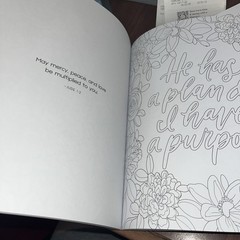 May mercy, peace, and love
be multiplied to you.
He has
a plan &
I have
a purpo